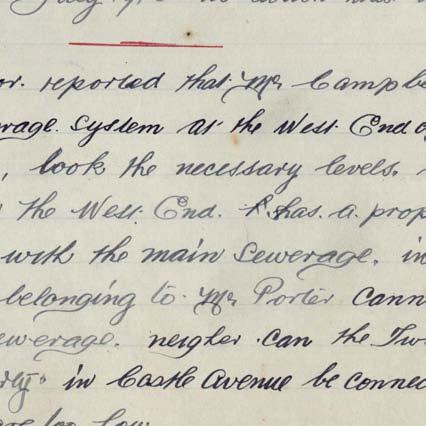 or. reported that Mr Campbe
rage. System at the West End o
, took the necessary levels.
the West End. has a prop
with the main Sewerage. in
belonging to Mr Porter cann
ewerage. neigher can the Tw
rty" in Castle Avenue be connec
are too low